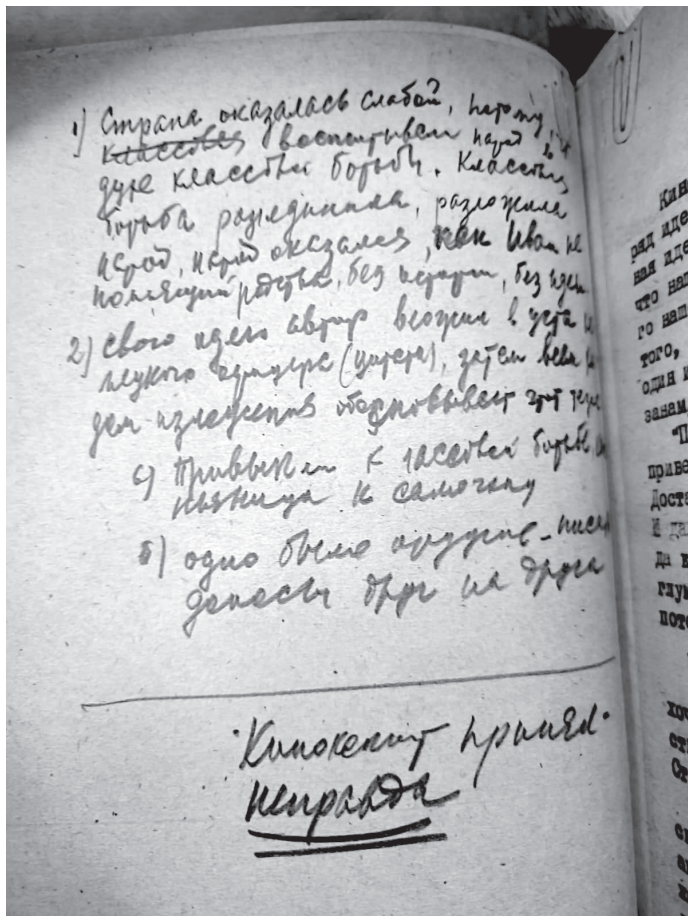 1) Страна оказалась слабой, потому, чт
классовая воспитывали народ в
духе классовой борьбы. Классовая
борьба разъединила, разложила
народ, народ оказался, как Иван не
помнящий родства, без истории, без идеи
2) Свою идею автор вложил в уста не
(цитата), затем всем хо
дом изложения обосновывает этот тезис
а) Привыкли к классовой борьбе, как
пьяница к самогону
б) одно было оружие - писать
доносы друг на друга
"Кинокомит принял"
неправда
Кин
ряд иде
ная иде
что наш
го наш
того,
один и
занам
"П
приве
Доста
И да
да к
глуп
пот
хо
ст
Ст